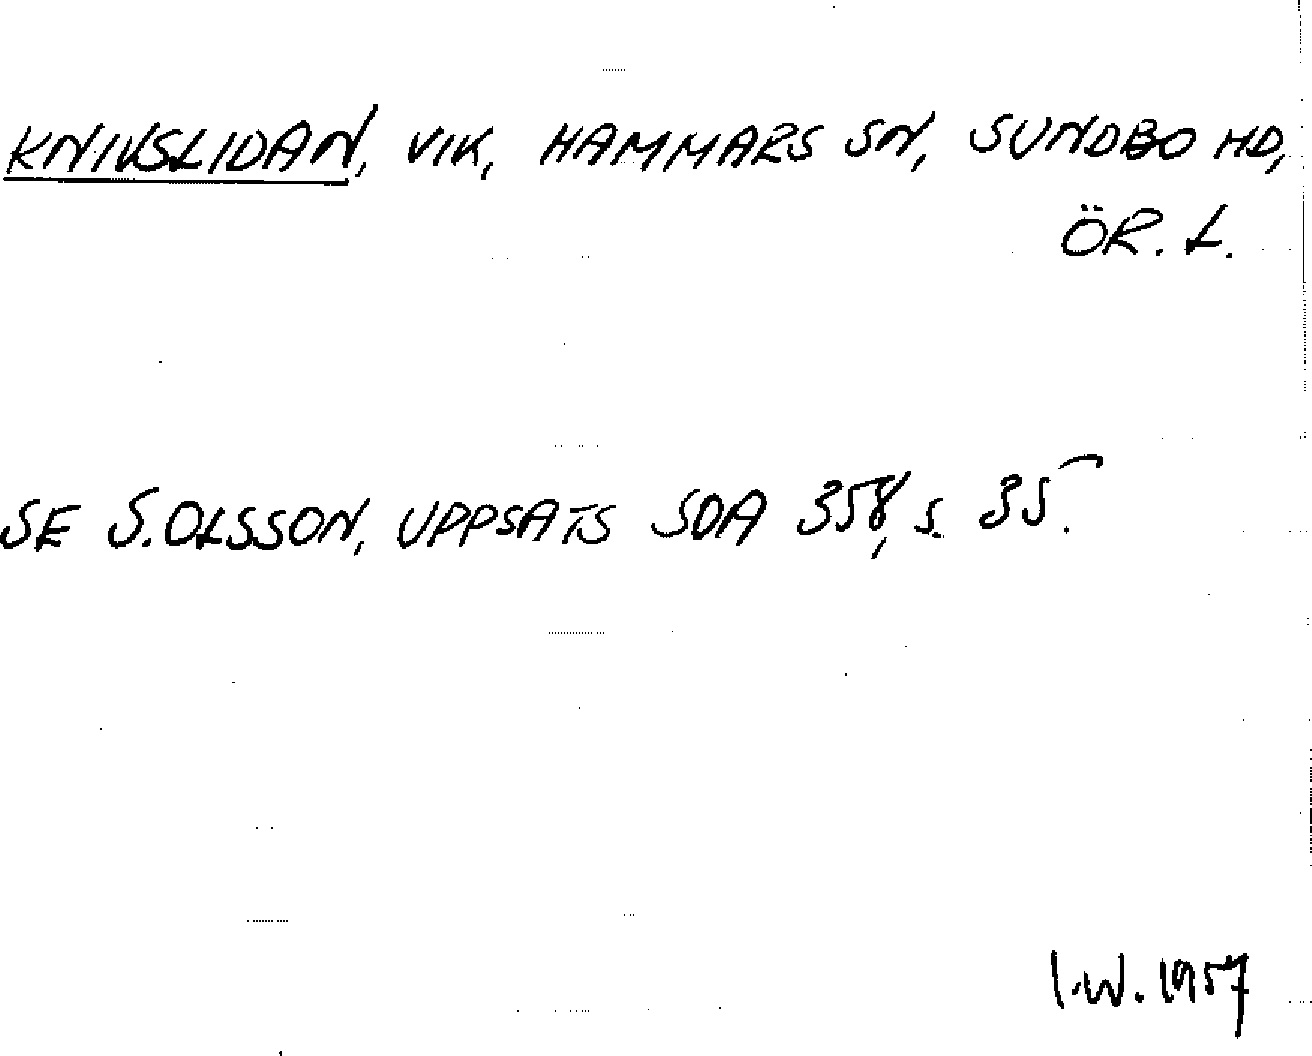 KNIVSLIDAN, VIK, HAMMARS SN, SUNDBO HD,
ÖR. L.
SE S. OLSSON, UPPSATS SOA 358, S. 35.
I.W. 1957